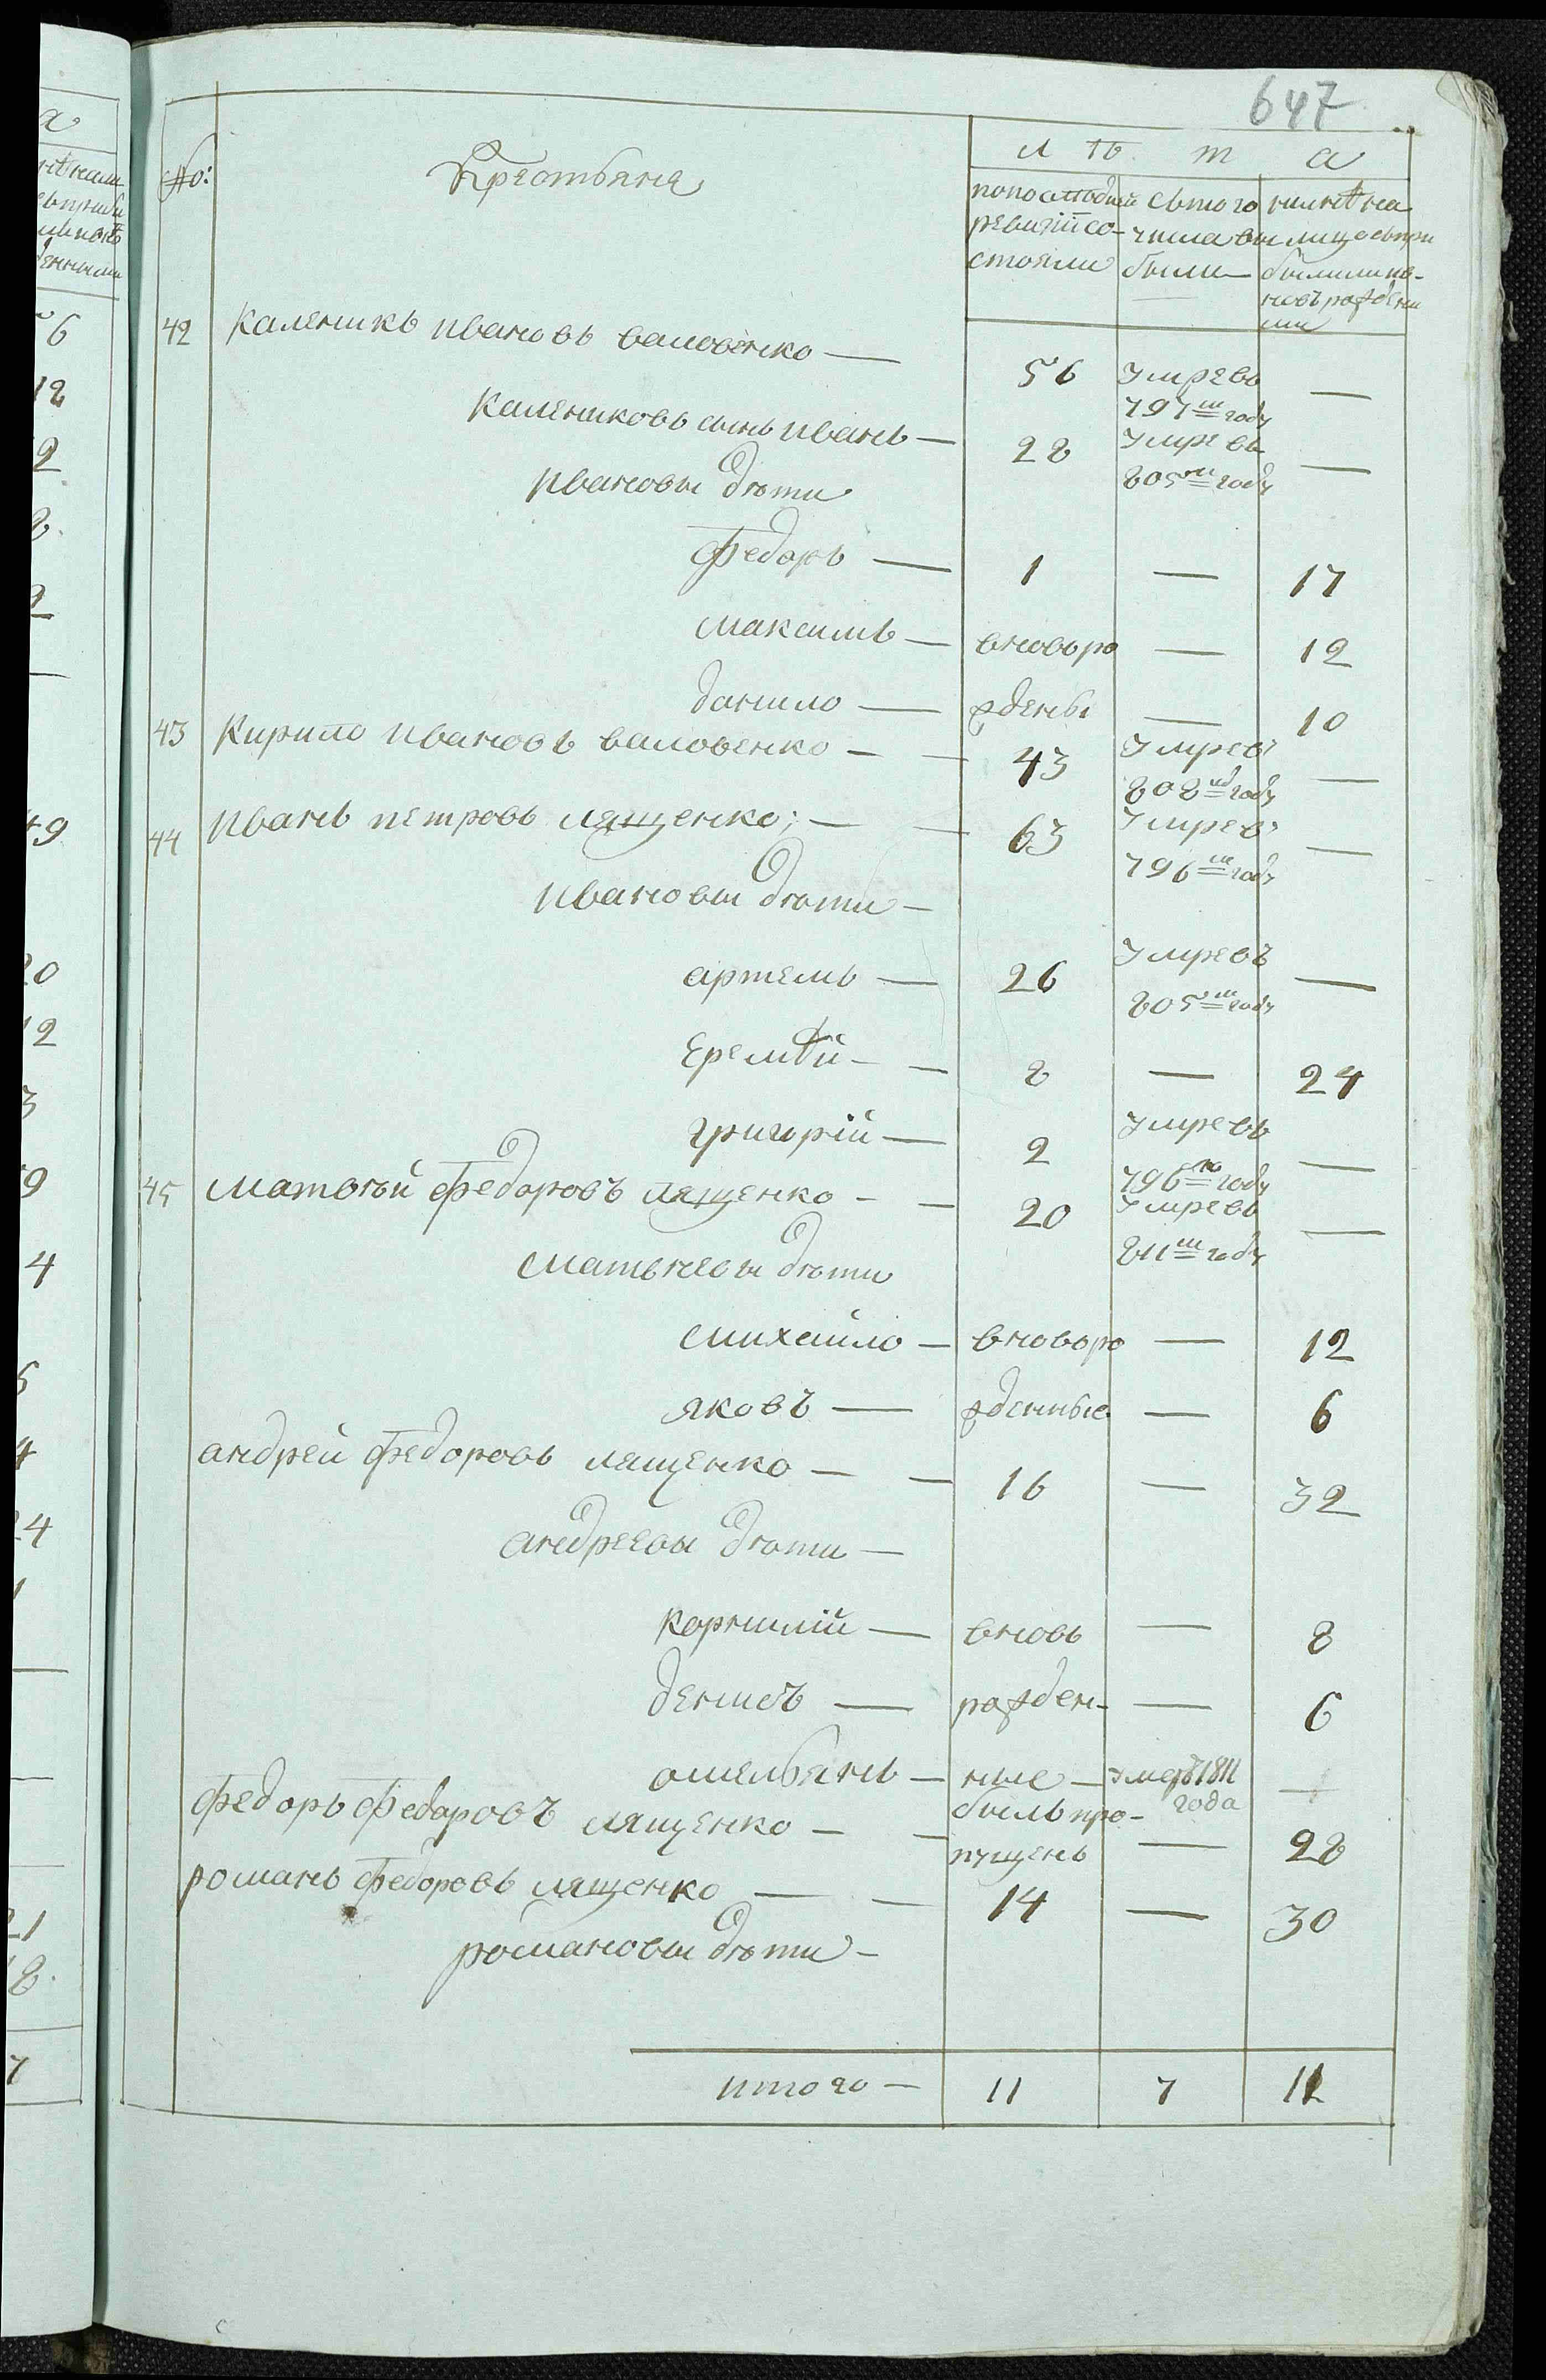 647
№: Крестьяне
л ѣ т а
попоследней ревизiи состояли
сътого числа выбыли
нынѣ налицо съприбылыми ивновь рожденными
42 Каленикъ Ивановъ валовенко — 56 Умре въ 797м году —
Калениковъ сынъ Иванъ — 28 Умре въ 805м году —
Ивановы дѣти
Федоръ — 1 — 17
Максимъ — вновь ро — 12
Данило — жdены — 10
43 Кирило Ивановъ валовенко — 43 Умре въ 808м году —
44 Иванъ Петровъ Лященко; — 63 Умре въ 796м году —
Ивановы дѣти —
Артемъ — 26 Умре въ 805м году —
Еремѣй — 8 — 24
Григорiй — 2 Умре въ 796м году —
45 Матвѣй Федоровъ Лященко — 20 Умре въ 811м году —
Матвѣевы дѣти
Михайло — вновь ро — 12
Яковъ — жденные — 6
Андрей Федоровъ Лященко — 16 — 32
Андреевы дѣти —
Корнилiй — вновь — 8
Денисъ — рожден- — 6
Омельянъ — ные — Умеръ 1811 года —
Федоръ Федоровъ Лященко — былъ пропущенъ — 28
Романъ Федоровъ Лященко — 14 — 30
Романовы дѣти —
Итого — 11 7 11